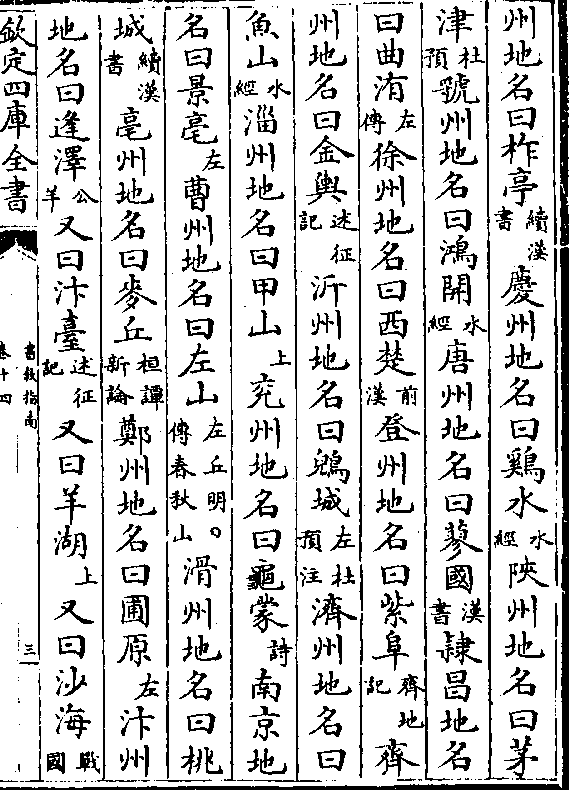 州地名曰柞亭續漢書慶州地名曰鷄水水經陜州地名曰茅
津杜預虢州地名曰鴻開水經唐州地名曰蓼國漢書隸昌地名
曰曲洧左傳徐州地名曰西楚前漢登州地名曰紫阜齊地記齊
州地名曰金輿述征記沂州地名曰城左杜預注濟州地名曰
魚山水經淄州地名曰甲山上兖州地名曰龜蒙詩南京地
名曰景亳左曹州地名曰左山左丘明。傳春秋山滑州地名曰桃
城續漢書亳州地名曰麥丘桓譚新論鄭州地名曰圃原左汴州
地名曰逢澤公羊又曰汴臺述征記又曰羊湖上又曰沙海戰國
欽定四庫全書
書敘指南
卷十四
三